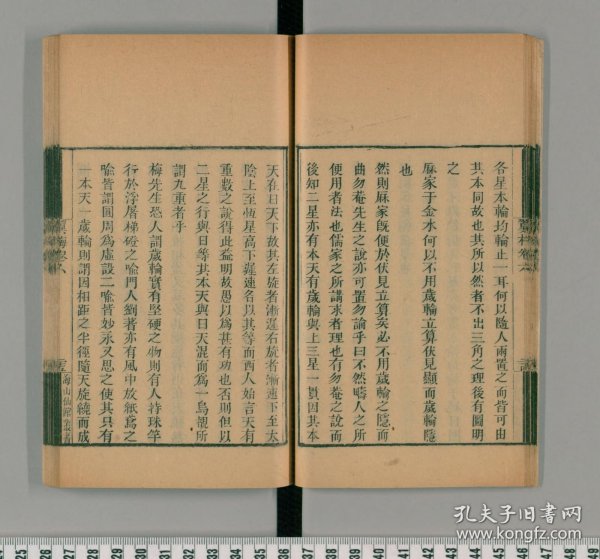 各星本輪均輪止一耳何以隨人兩置之而皆可由
其本同故也其所以然者不出三角之理後有圖明
之
厤家于金水何以不用歲輪立算伏見顯而歲輪隱
也
然則厤家既便於伏見立算矣必不用歲輪之隱而
曲勿菴先生之說亦可置勿論乎曰不然疇人之所
便用者法也儒家之所講求者理也有勿菴之說而
後知二星亦有本天有歲輪與上三星一貫因其本
天在日天下故其左旋者漸遲右旋者漸速下至太
陰上至恆星高下遲速名以其等而西人始言天有
重數之說得此益明故愚以爲甚有功也否則但以
二星之行與日等其本天與日天混而爲一烏覩所
謂九重者乎
梅先生恐人謂歲輪實有堅硬之物則有人持珠竿
行於浮屠梯磴之喻門人劉著亦有風中放紙鳶之
喻皆謂圓周爲虛設二喻皆妙永又思之使其只有
一本天一歲輪則謂因相距之半徑隨天旋繞而成
海山仙館叢書
孔夫子旧书网
www.kongfz.com
25 26 27 28 29 30 31 32 33 34 35 36 37 38 39 40 41 42 43 44 45 46